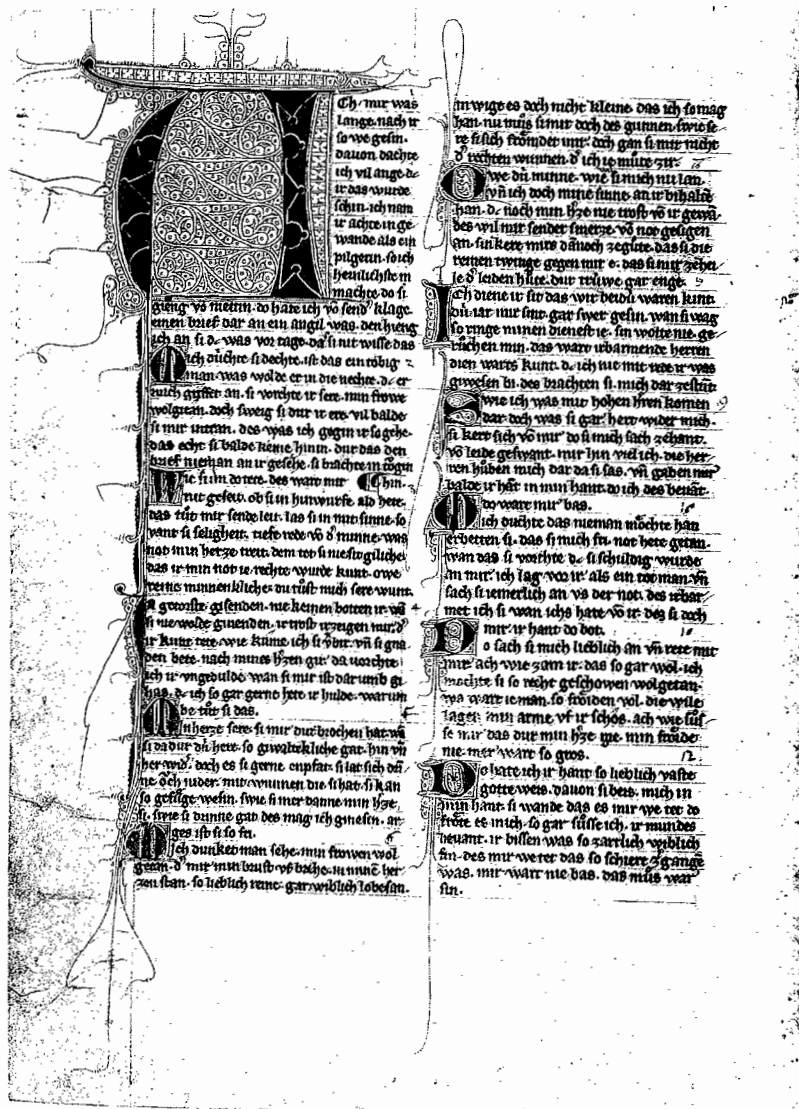 Ch mir was
lange nach ir
so we gesin.
dauon dachte
ich vil ange dc
ir das wurde
schin ich nam
ir achte in ge
wande als ein
pilgerin so ich
heinlichste in
machte do si
gieng vō mettin. do hate ich vō send' klage.
einen brief dar an ein angil was. den hieng
ich an si dc was vor tage. dc si nit wisse das
Mich dūchte si dechte. ist das ein tobig
man. was wolde er in die nechte. dc er
mich griffet an. si vorchte ir sere. min frowe
wolgitan. doch sweig si dur ir ere. vil balde
si mir intran. des was ich gegin ir so gehe.
das echt si balde keme hinin. dur das den
brief nieman an ir gesehe. si brachte in tōgin
Wie si im do tete. des wart mir ¶ hin.
nit geseit. ob si in hinwurfe ald hete.
das tůt mir sende leit. las si in mit sinne. so
vant si selighelt. tiefe rede vō d' minne. was
not min herze treit. dem tet si nie stogiliche
das ir min not ie rechte wurde kunt. owe
reine minnenkliche. du tůst mich sere wunt.
getorste gisenden. nie keinen botten ir wā
si nie wolde ginenden. ir trost irzeigen mir. d'
ir kunt tete. wie kume ich si v'bir. vn̄ si gna
den bete. nach mines h'zen gir. da vorchte
ich ir vngedulde. wan si mir ist dar umb gi
has. dc ich so gar gerne hete ir hulde. warum
be tůt si das.
Min herze sere. si mir dur brochen hat. wā
si da dur dū here. so giwaltekliche gat. hin vn̄
her wid'. doch es si gerne enpfat. si lat sich drī
ne ôch nider. mit wunnen die si hat. si kan
so gefůge wesin. swie si mer danne min h'ze
si. swie si drinne gat des mag ich ginesin. ar
ges ist si so fri.
Mich dunket man sehe. min frowen wol
getan. d' mir min brust vf breche. in minē her
zen stan. so lieblich reine. gar wiblich lobesan.
in wige es doch nicht kleine. das ich so mag
han. nu můs si mir doch des gunnen. swie se
re si sich frômdet mir. doch gan si mir nicht
d' rechten wunnen. d' ich ie můte zir.
Owe dū minne. wie si mich nu lan.
vn̄ ich doch mine sinne. an ir bihaltē
han. dc noch min h'ze nie trost vō ir gewā.
des wil mir sender smerze. vō not gesigen
an. sin kere mirs dānoch zegůte. das si die
reinen twinge gegen mir e. das si mir zehei
le d' leiden hůte. dur trúwe gar enge.
Ich diene ir sit das wir beidu waren kint.
du iar mir sint gar swer gesin. wan si wag
so ringe minen dienest ie. sin wolte nie. ge
rûchen min. das wart irbarmende herren
dien warts kunt. dc ich nie mit rede ir was
giwesen bi. des brachten si mich dar zestūt.
Swie ich was mit hohen h'ren komen
dar doch was si gar hert wider mich.
si kert sich vō mir do si mich sach zehant.
vō leide geswant. mir hin viel ich. die her
ren hůben mich dar da si sas. vn̄ gaben mir
balde ir hāt in min hant. do ich des bevāt.
do wart mir bas.
Mich duchte das nieman môchte han
erbetten si. das si mich fri. not hete getan.
wan das si vorchte dc si schuldig wurde
an mir. ich lag vor ir. als ein tot man vn̄
sach si iemerlich an vs der not. des irbar
met ich si wan ichs hate vō ir. dez si doch
mir ir hant do bot.
Do sach si mich lieblich an vn̄ rete mit
mir. ach wie zam ir. das so gar wol. ich
mochte si so recht geschowen wolgetan.
wa wart ie man. so frôiden vol. die wile
lagen min arme vf ir schos. ach wie sůs
se mir das dur min h'ze gie. min frôide
nie mer wart so gros.
Do hate ich ir hant so lieblich vaste
gotte weis. davon si beis. mich in
min hant. si wande das es mir we tet do
frôte es mich. so gar sůsse ich. ir mundes
bevant. ir bissen was so zartlich wiblich
fin. des mir we tet das so schiere z'gangē
was. mir wart nie bas. das můs war
sin.